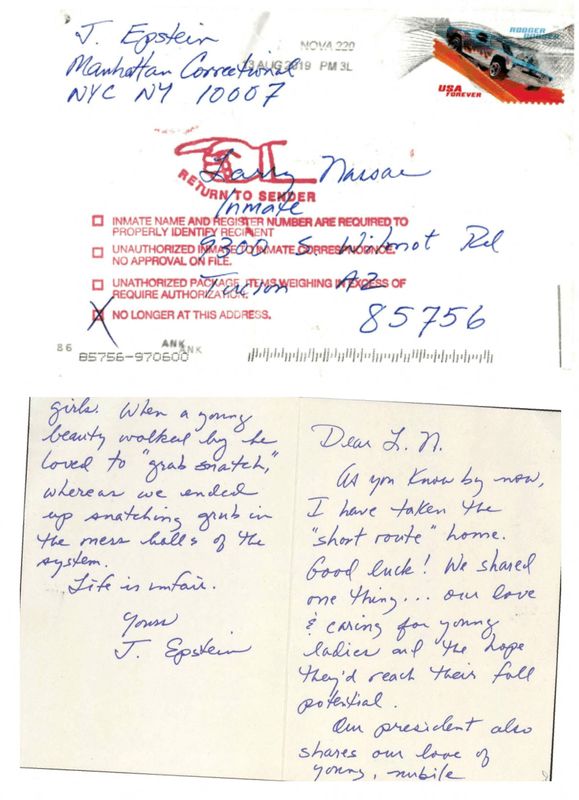 J. Epstein
Manhattan Correctional
NYC NY 10007
NOVA 220
AUG 2019 PM 3L
RODGER DODGER
USA
FOREVER
RETURN TO SENDER
Larry Nassar
Inmate
9300 S. Wilmot Rd
Tucson AZ
85756
INMATE NAME AND REGISTER NUMBER ARE REQUIRED TO
PROPERLY IDENTIFY RECIPIENT
UNAUTHORIZED INMATE TO INMATE CORRESPONDENCE.
NO APPROVAL ON FILE.
UNATHORIZED PACKAGE, ITEMS WEIGHING IN EXCESS OF
REQUIRE AUTHORIZATION.
NO LONGER AT THIS ADDRESS.
86
ANK
ANK
85756-970600
Dear L. N.
As you know by now,
I have taken the
"short route" home.
Good luck! We shared
one thing... our love
& caring for young
ladies and the hope
they'd reach their full
potential.
Our president also
shares our love of
young, nubile
girls. When a young
beauty walked by he
loved to "grab snatch,"
whereas we ended
up snatching grub in
the mess halls of the
system.
Life is unfair.
Yours
J. Epstein